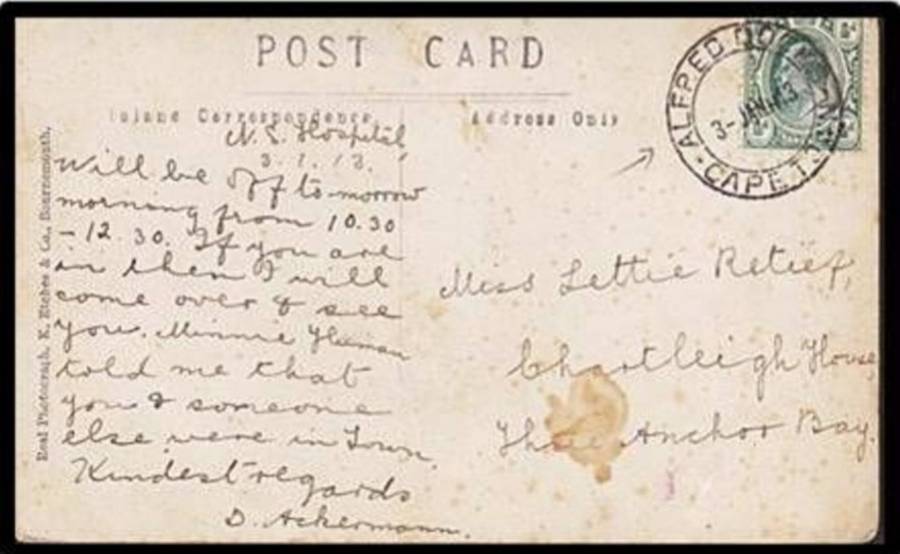 POST CARD
Inland Correspondence
Address Only
ALFRED DOCKS
3 - JAN. 13
CAPETOWN
N. S. Hospital
3. 1. 13.
Will be off to-morrow
morning from 10.30
- 12.30. If you are
in then I will
come over & see
you. Minnie Human
told me that
you & someone
else were in Town.
Kindest regards
D. Ackermann.
Miss Lettie Retief,
Chartleigh House,
Three Anchor Bay.
Real Photograph, K. Etches & Co., Bournemouth.